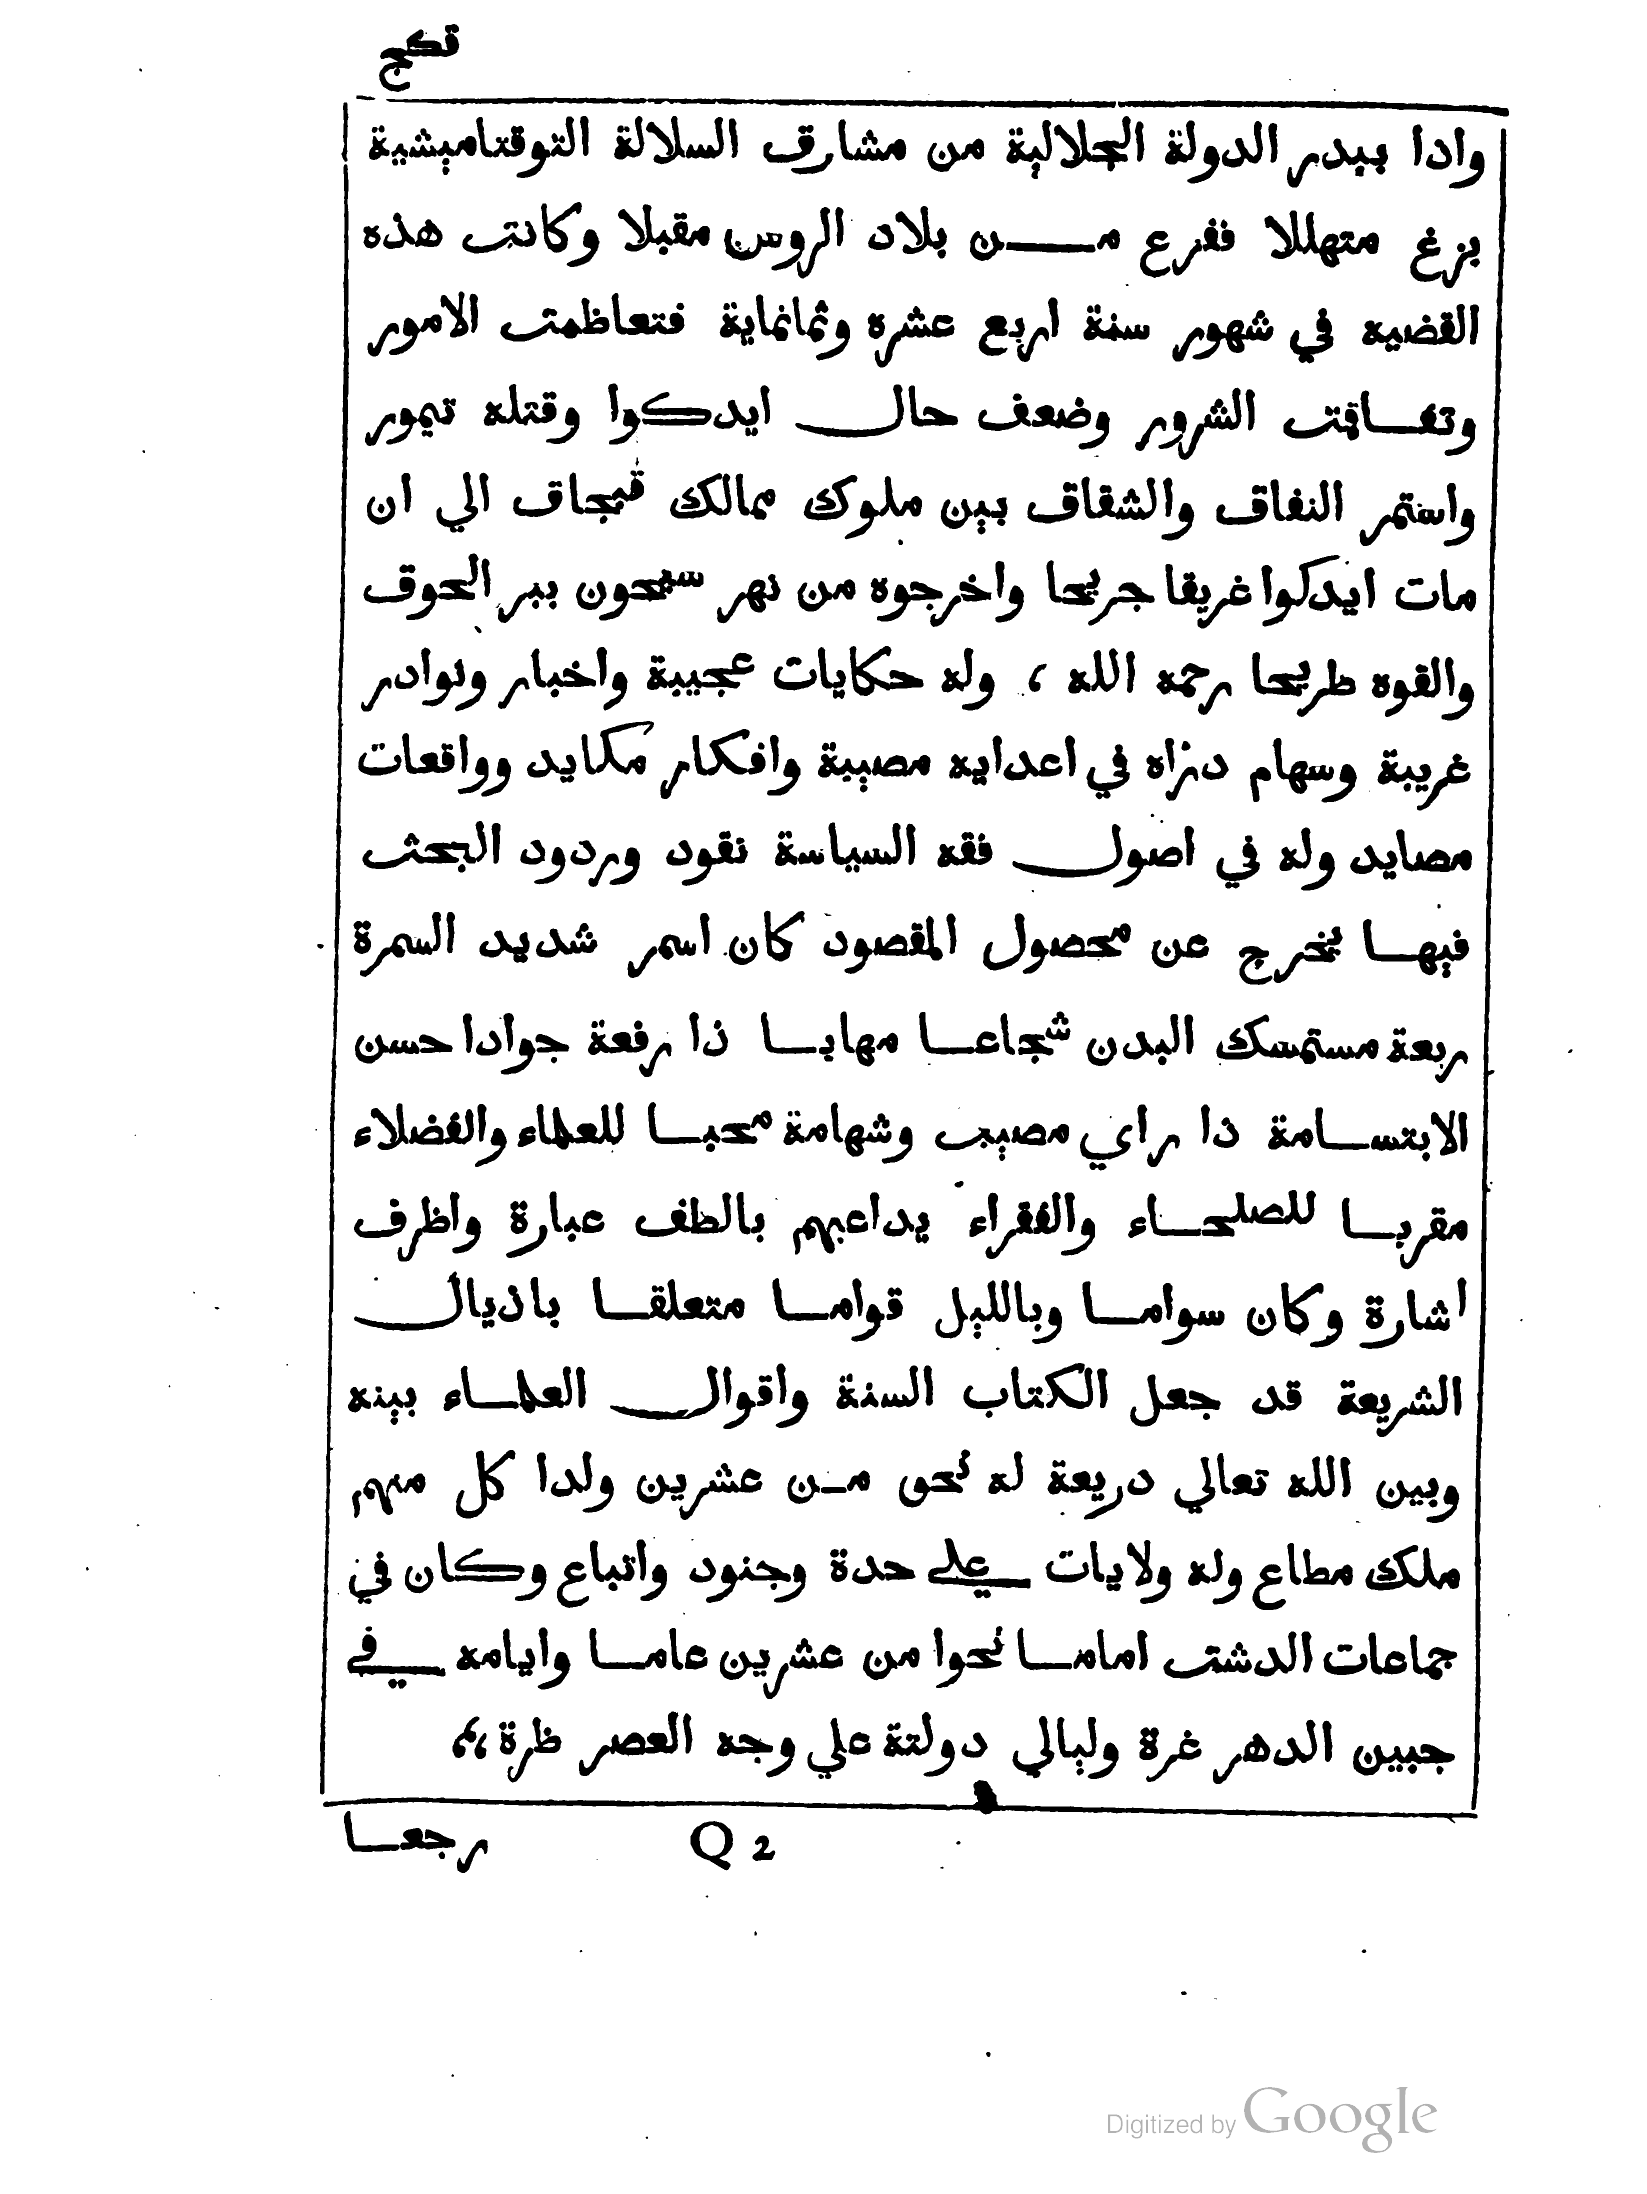 قكج
وادا ببدر الدولة الجلالية من مشارق السلالة التوقتاميشية
بزغ متهللا ففرع من بلاد الروس مقبلا وكانت هذه
القضيه في شهور سنة اربع عشره وثمانماية فتعاظمت الامور
وتفاقمت الشرور وضعف حال ايدكوا وقتله تيمور
واستمر النفاق والشقاق بين ملوك ممالك قبجاق الي ان
مات ايدكوا غريقا جريحا واخرجوه من نهر سيحون ببر الحوق
والقوه طريحا رحمه الله ، وله حكايات عجيبة واخبار ونوادر
غريبة وسهام دزاه في اعدايه مصيبة وافكار مكايد وواقعات
مصايد وله في اصول فقه السياسة نقود وردود البحث
فيها يخرج عن محصول المقصود كان اسمر شديد السمرة
ربعة مستمسك البدن شجاعا مهابا ذا رفعة جوادا حسن
الابتسامة ذا راي مصيب وشهامة محبا للعلماء والفضلاء
مقربا للصلحاء والفقراء يداعبهم بالطف عبارة واظرف
اشارة وكان سواما وبالليل قواما متعلقا باذيال
الشريعة قد جعل الكتاب السنة واقوال العلماء بينه
وبين الله تعالي دريعة له نحو من عشرين ولدا كل منهم
ملك مطاع وله ولايات علي حدة وجنود واتباع وكان في
جماعات الدشت اماما نحوا من عشرين عاما وايامه في
جبين الدهر غرة وليالي دولتة علي وجه العصر ظرة ،،
رجعا
Q 2
Digitized by Google